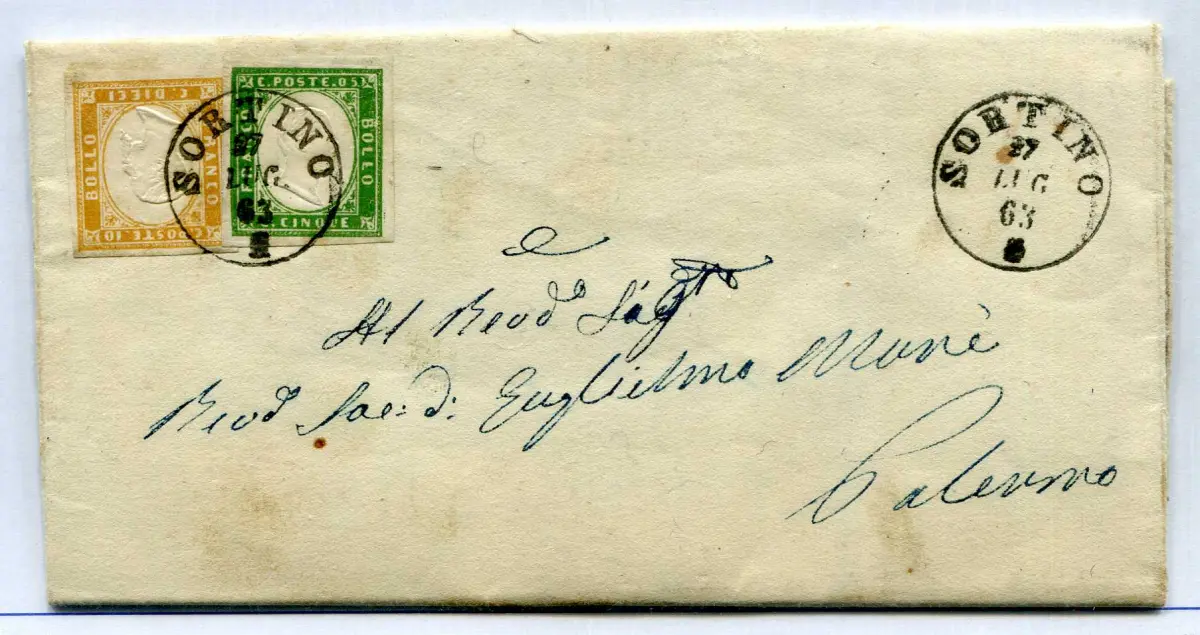 C. DIECI
BOLLO
FRANCO
C. POSTE 10
C. POSTE. 05
BOLLO
CINQUE
SORTINO
27
LUG
63
SORTINO
27
LUG
63
Al Revdo
Revdo Sac: D: Guglielmo
Palermo